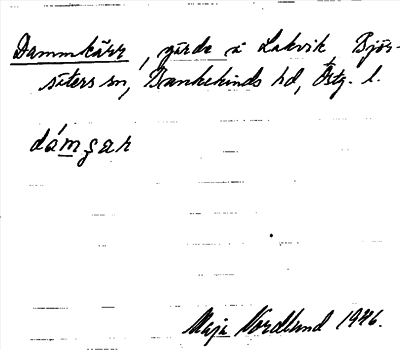 Dammkärr, gärde å Lakvik Björ-
säters sn, Bankekinds hd, Östg. l.
dám̲ʂar
Maja Nordlund 1946.